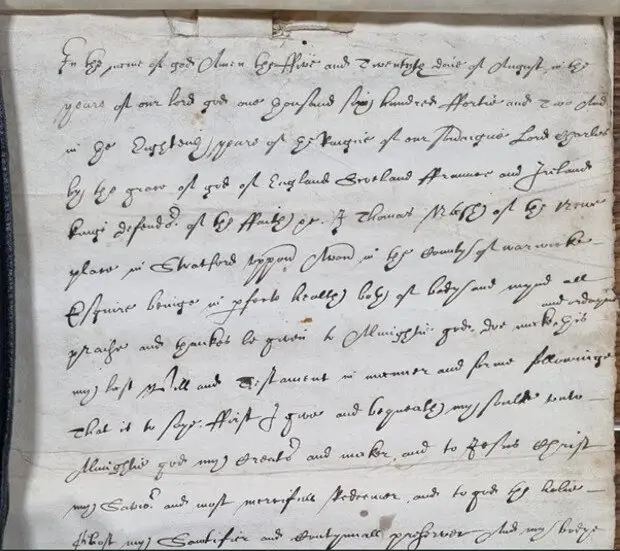 In the name of god Amen the ffive and Twentyth daie of August in the
yeare of our lord god one thousand sixe hundred ffortie and Two And
in the Eighteenth yeare of the Raigne of our Soveraigne Lord Charles
by the grace of god of England Scotland ffraunce and Ireland
kinge defendor of the ffaith &c. I Thomas Nash of the Newe
place in Stratford uppon Avon in the County of warwicke
Esquire beinge in perfecte health both of body and mynd all
praise and thankes be given to Almightie god doe make and ordayne this
my last Will and Testament in manner and forme followinge
That is to saye ffirst I give and bequeath my soule unto
Almightie god my Creator and maker, and to Jesus Christ
my Savior and most mercifull Redeemer, and to god the holie
Ghost my Sanctifier and Contynuall preserver And my bodye